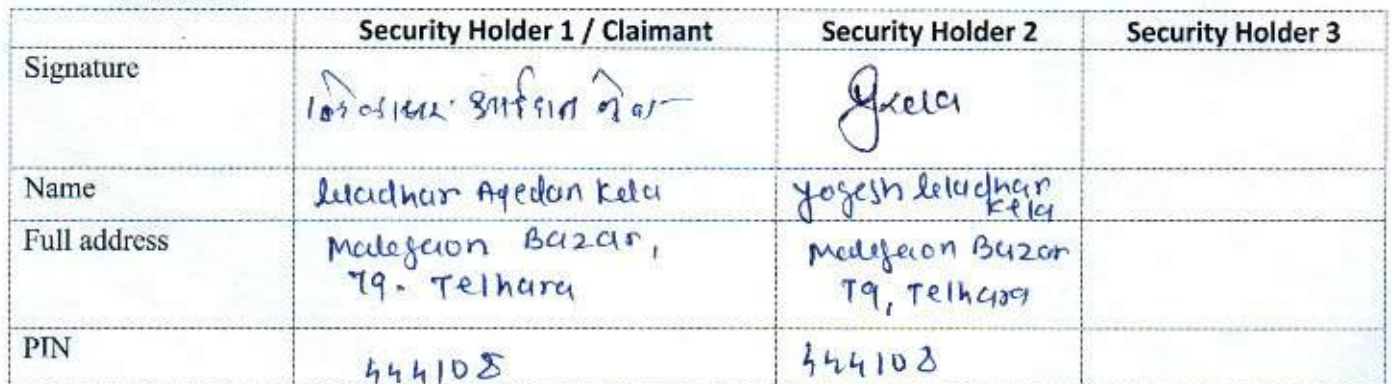 Security Holder 1 / Claimant Security Holder 2 Security Holder 3
Signature Ykela
Name Leladhar Agedan Kela Yogesh Leladhar Kela
Full address Malegaon Bazar, Malegaon Bazar
Tq. Telhara Tq, Telhara
PIN 444108 444108